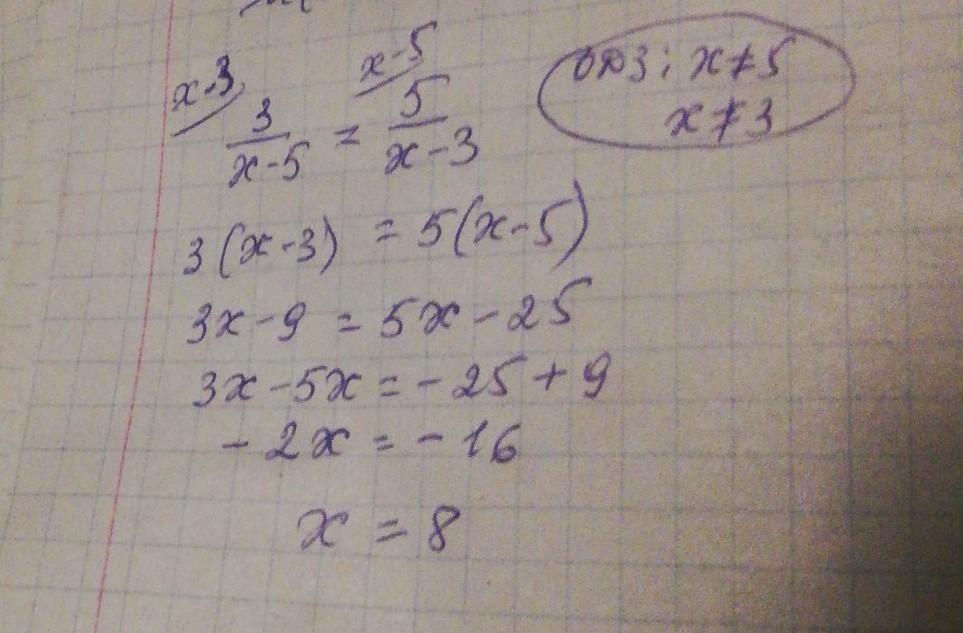 x-3 x-5
3/(x-5) = 5/(x-3)
ОДЗ: x≠5
x≠3
3(x-3) = 5(x-5)
3x-9 = 5x-25
3x-5x = -25+9
-2x = -16
x = 8